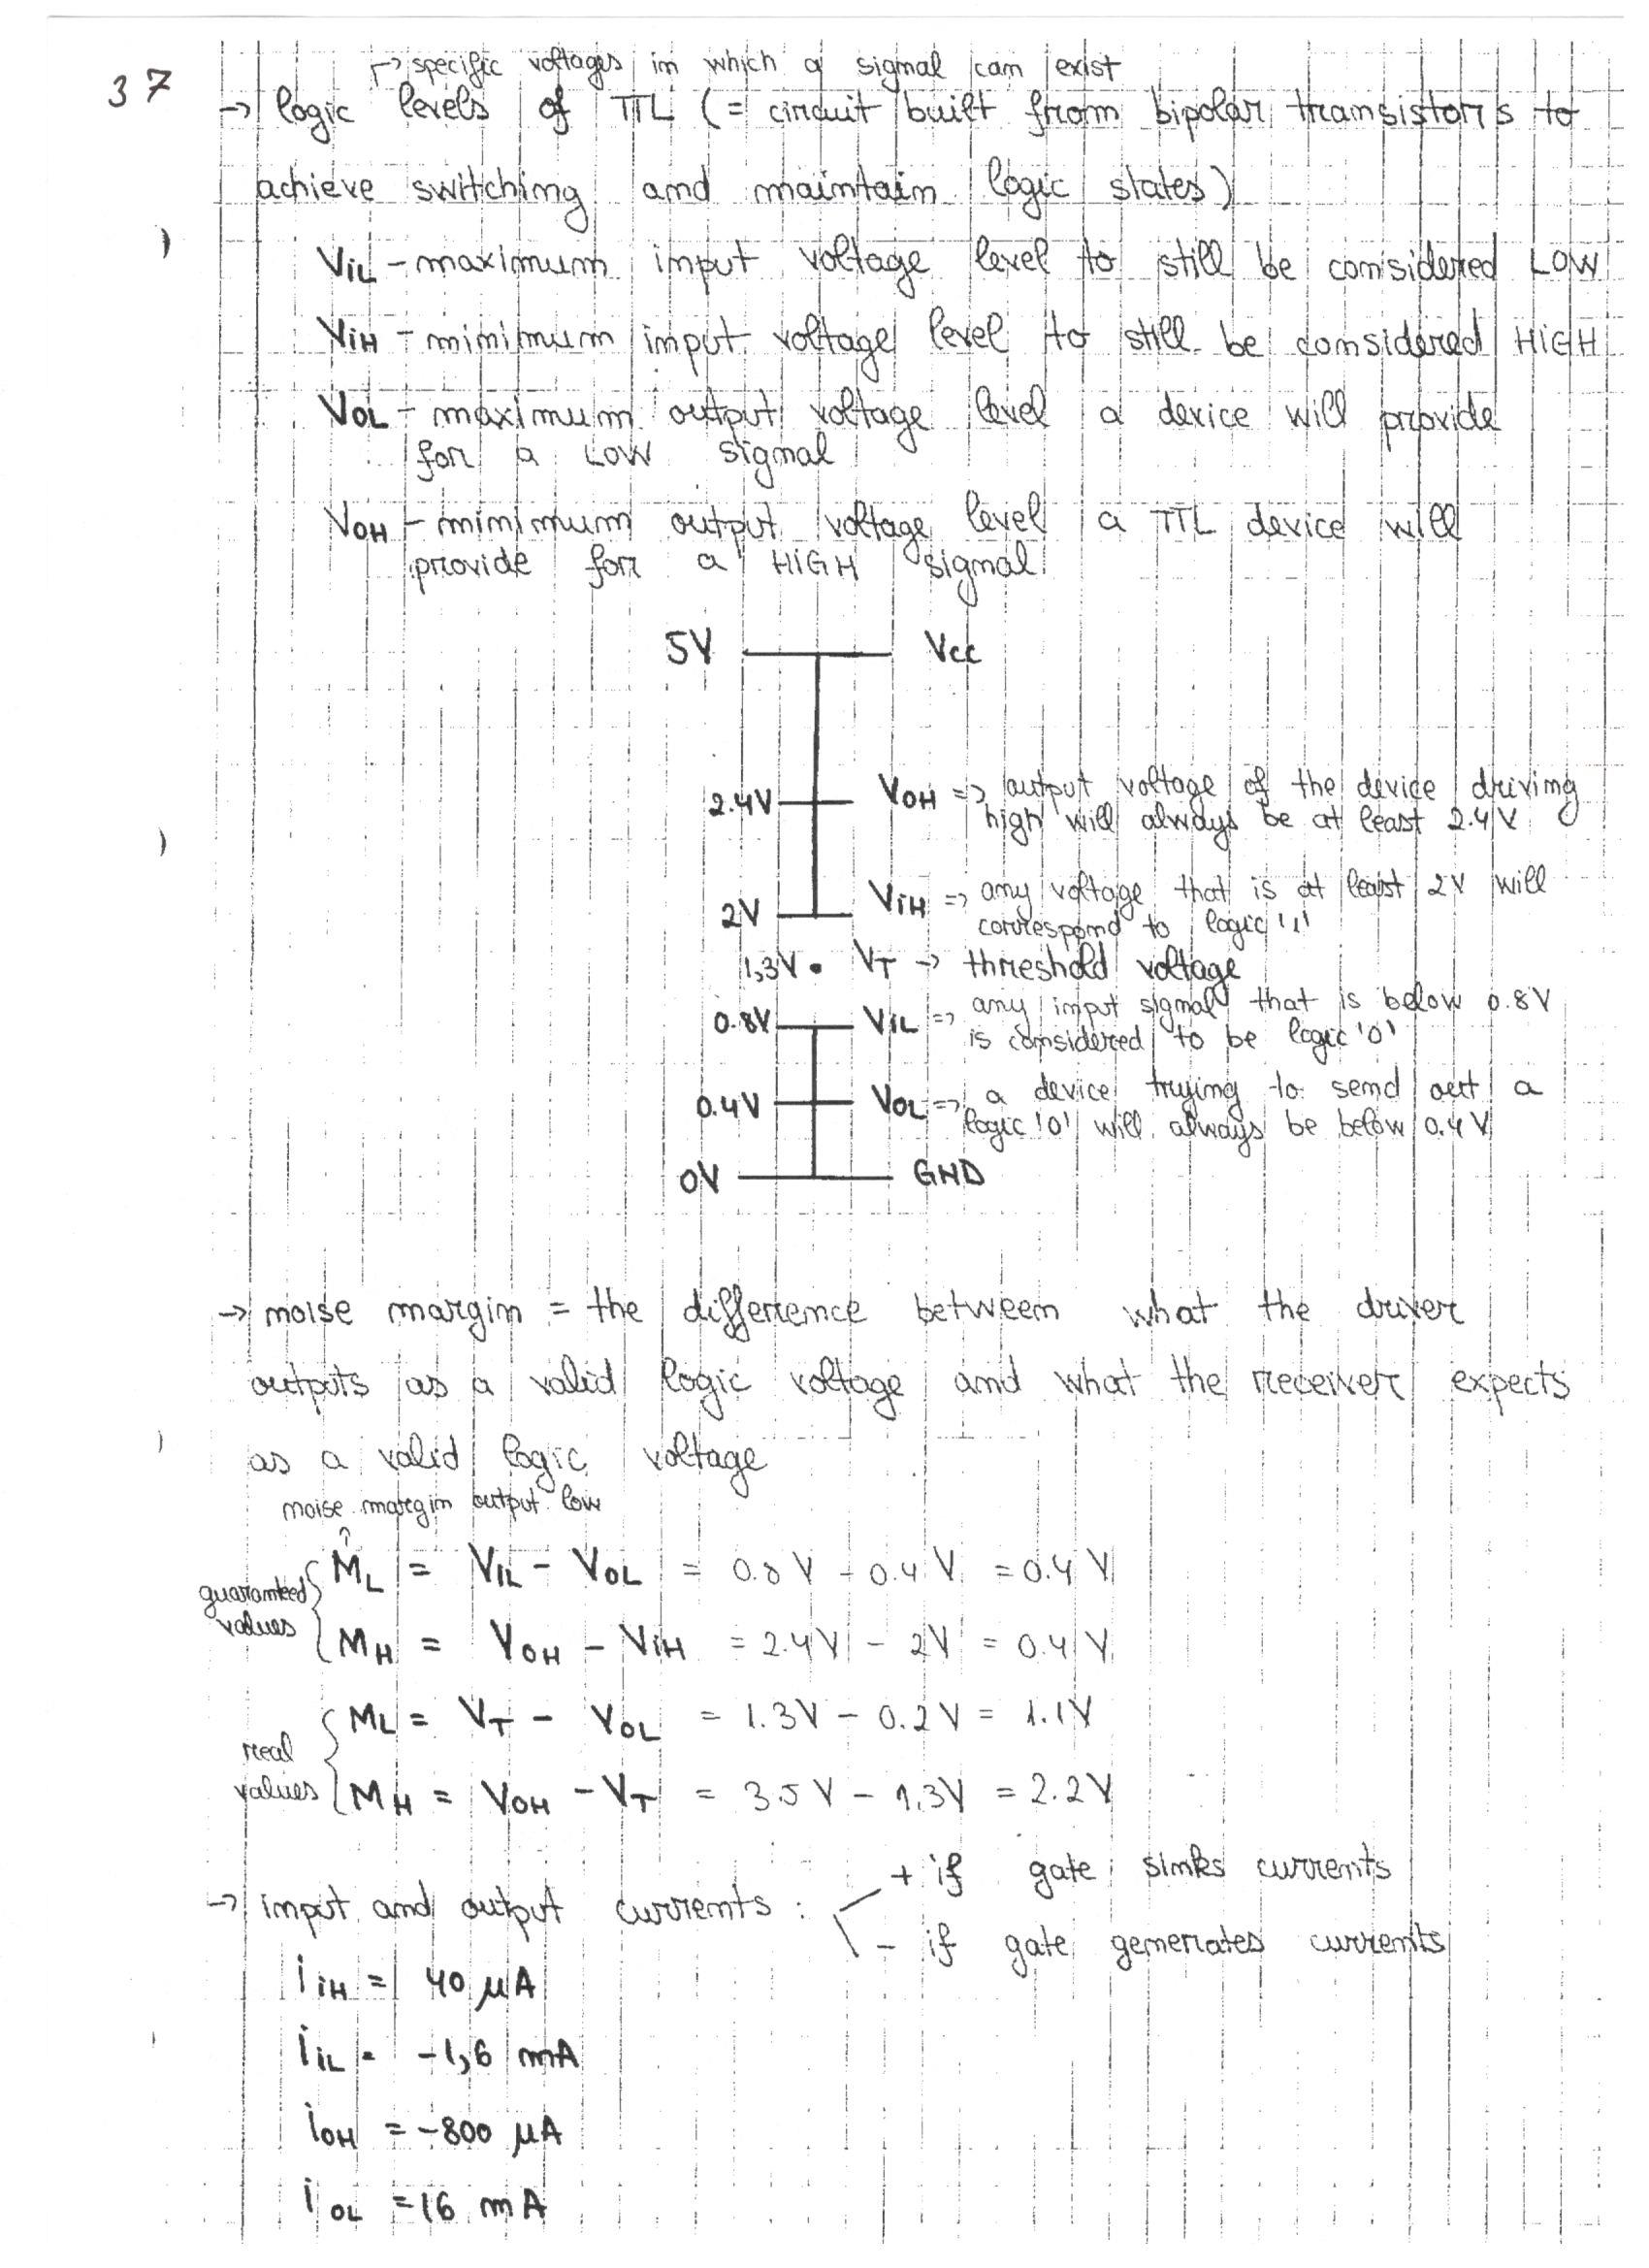 37
↱ specific voltages in which a signal can exist
→ logic levels of TTL (= circuit built from bipolar transistors to
achieve switching and maintain logic states)
ViL - maximum input voltage level to still be considered LOW
ViH - minimum input voltage level to still be considered HiGH
VOL - maximum output voltage level a device will provide
for a LOW signal
VOH - minimum output voltage level a TTL device will
provide for a HiGH signal
5V Vcc
2.4V VOH => output voltage of the device driving
high will always be at least 2.4V
2V ViH => any voltage that is at least 2V will
correspond to logic '1'
1,3V • VT → threshold voltage
0.8V ViL => any input signal that is below 0.8V
is considered to be logic '0'
0.4V VOL => a device trying to send out a
logic '0' will always be below 0.4V
0V GND
→ noise margin = the difference between what the driver
outputs as a valid logic voltage and what the receiver expects
as a valid logic voltage
noise margin output low
↑
guaranteed values
ML = VIL - VOL = 0.8V - 0.4V = 0.4V
MH = VOH - ViH = 2.4V - 2V = 0.4V
real values
ML = VT - VOL = 1.3V - 0.2V = 1.1V
MH = VOH - VT = 3.5V - 1.3V = 2.2V
+ if gate sinks currents
→ input and output currents :
- if gate generates currents
iiH = 40 μA
iiL = -1,6 mA
iOH = -800 μA
iOL = 16 mA